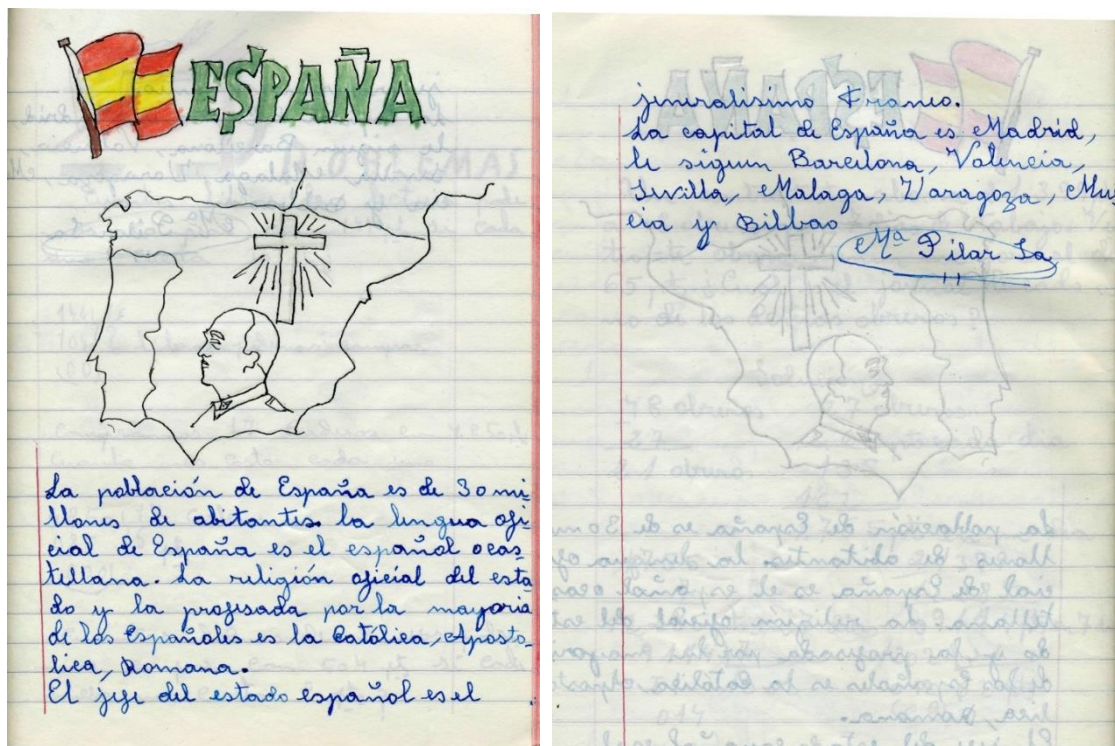 ESPAÑA
La población de España es de 30 mi
llones de abitantes. la lengua ofi
cial de España es el español ocas
tellana. La religión oficial del esta
do y la profesada por la mayoria
de los Españoles es la Católica, Aposto
lica, Romana.
El jefe del estado español es el
jeneralisimo Franco.
La capital de España es Madrid,
le siguen Barcelona, Valencia,
Sevilla, Malaga, Zaragoza, Mur
cia y Bilbao
Mª Pilar La